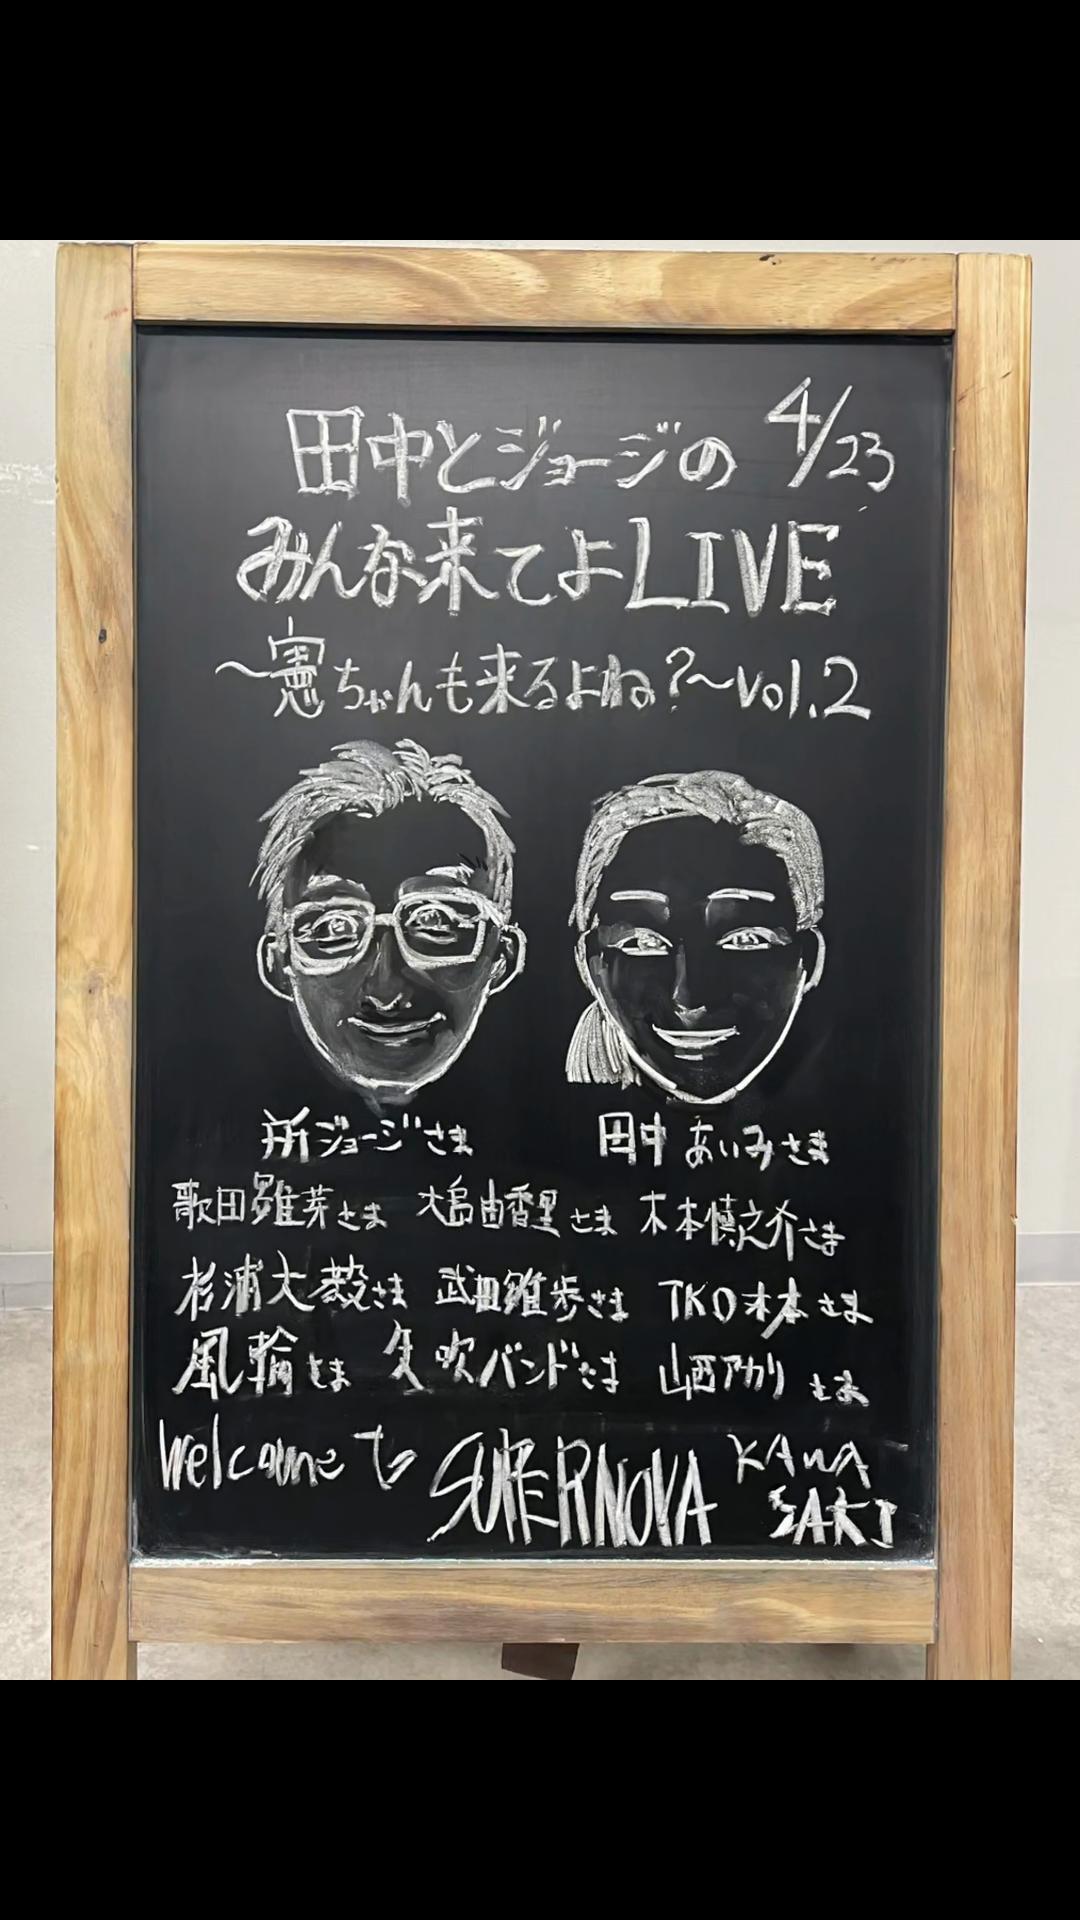 4/23
田中とジョージの
みんな来てよLIVE
～憲ちゃんも来るよね?～vol.2
所ジョージさま 田中あいみさま
歌田雛芽さま 大島由香里さま 木本慎之介さま
杉浦大毅さま 武田雛歩さま TKO木本さま
風輪さま 矢吹バンドさま 山西アカリさま
Welcome to SUPERNOVA KAWASAKI